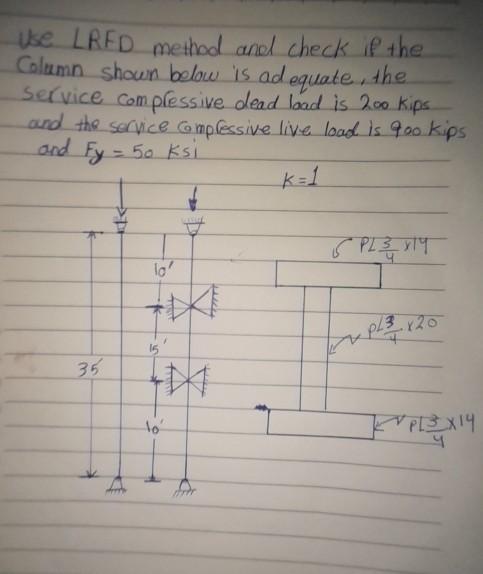 Use LRFD method and check if the
Column shown below is adequate, the
service compressive dead load is 200 kips
and the service compressive live load is 900 kips
and Fy = 50 ksi
K=1
PL 3/4 x14
10'
PL 3/4 x20
15'
35'
10'
PL 3/4 x14